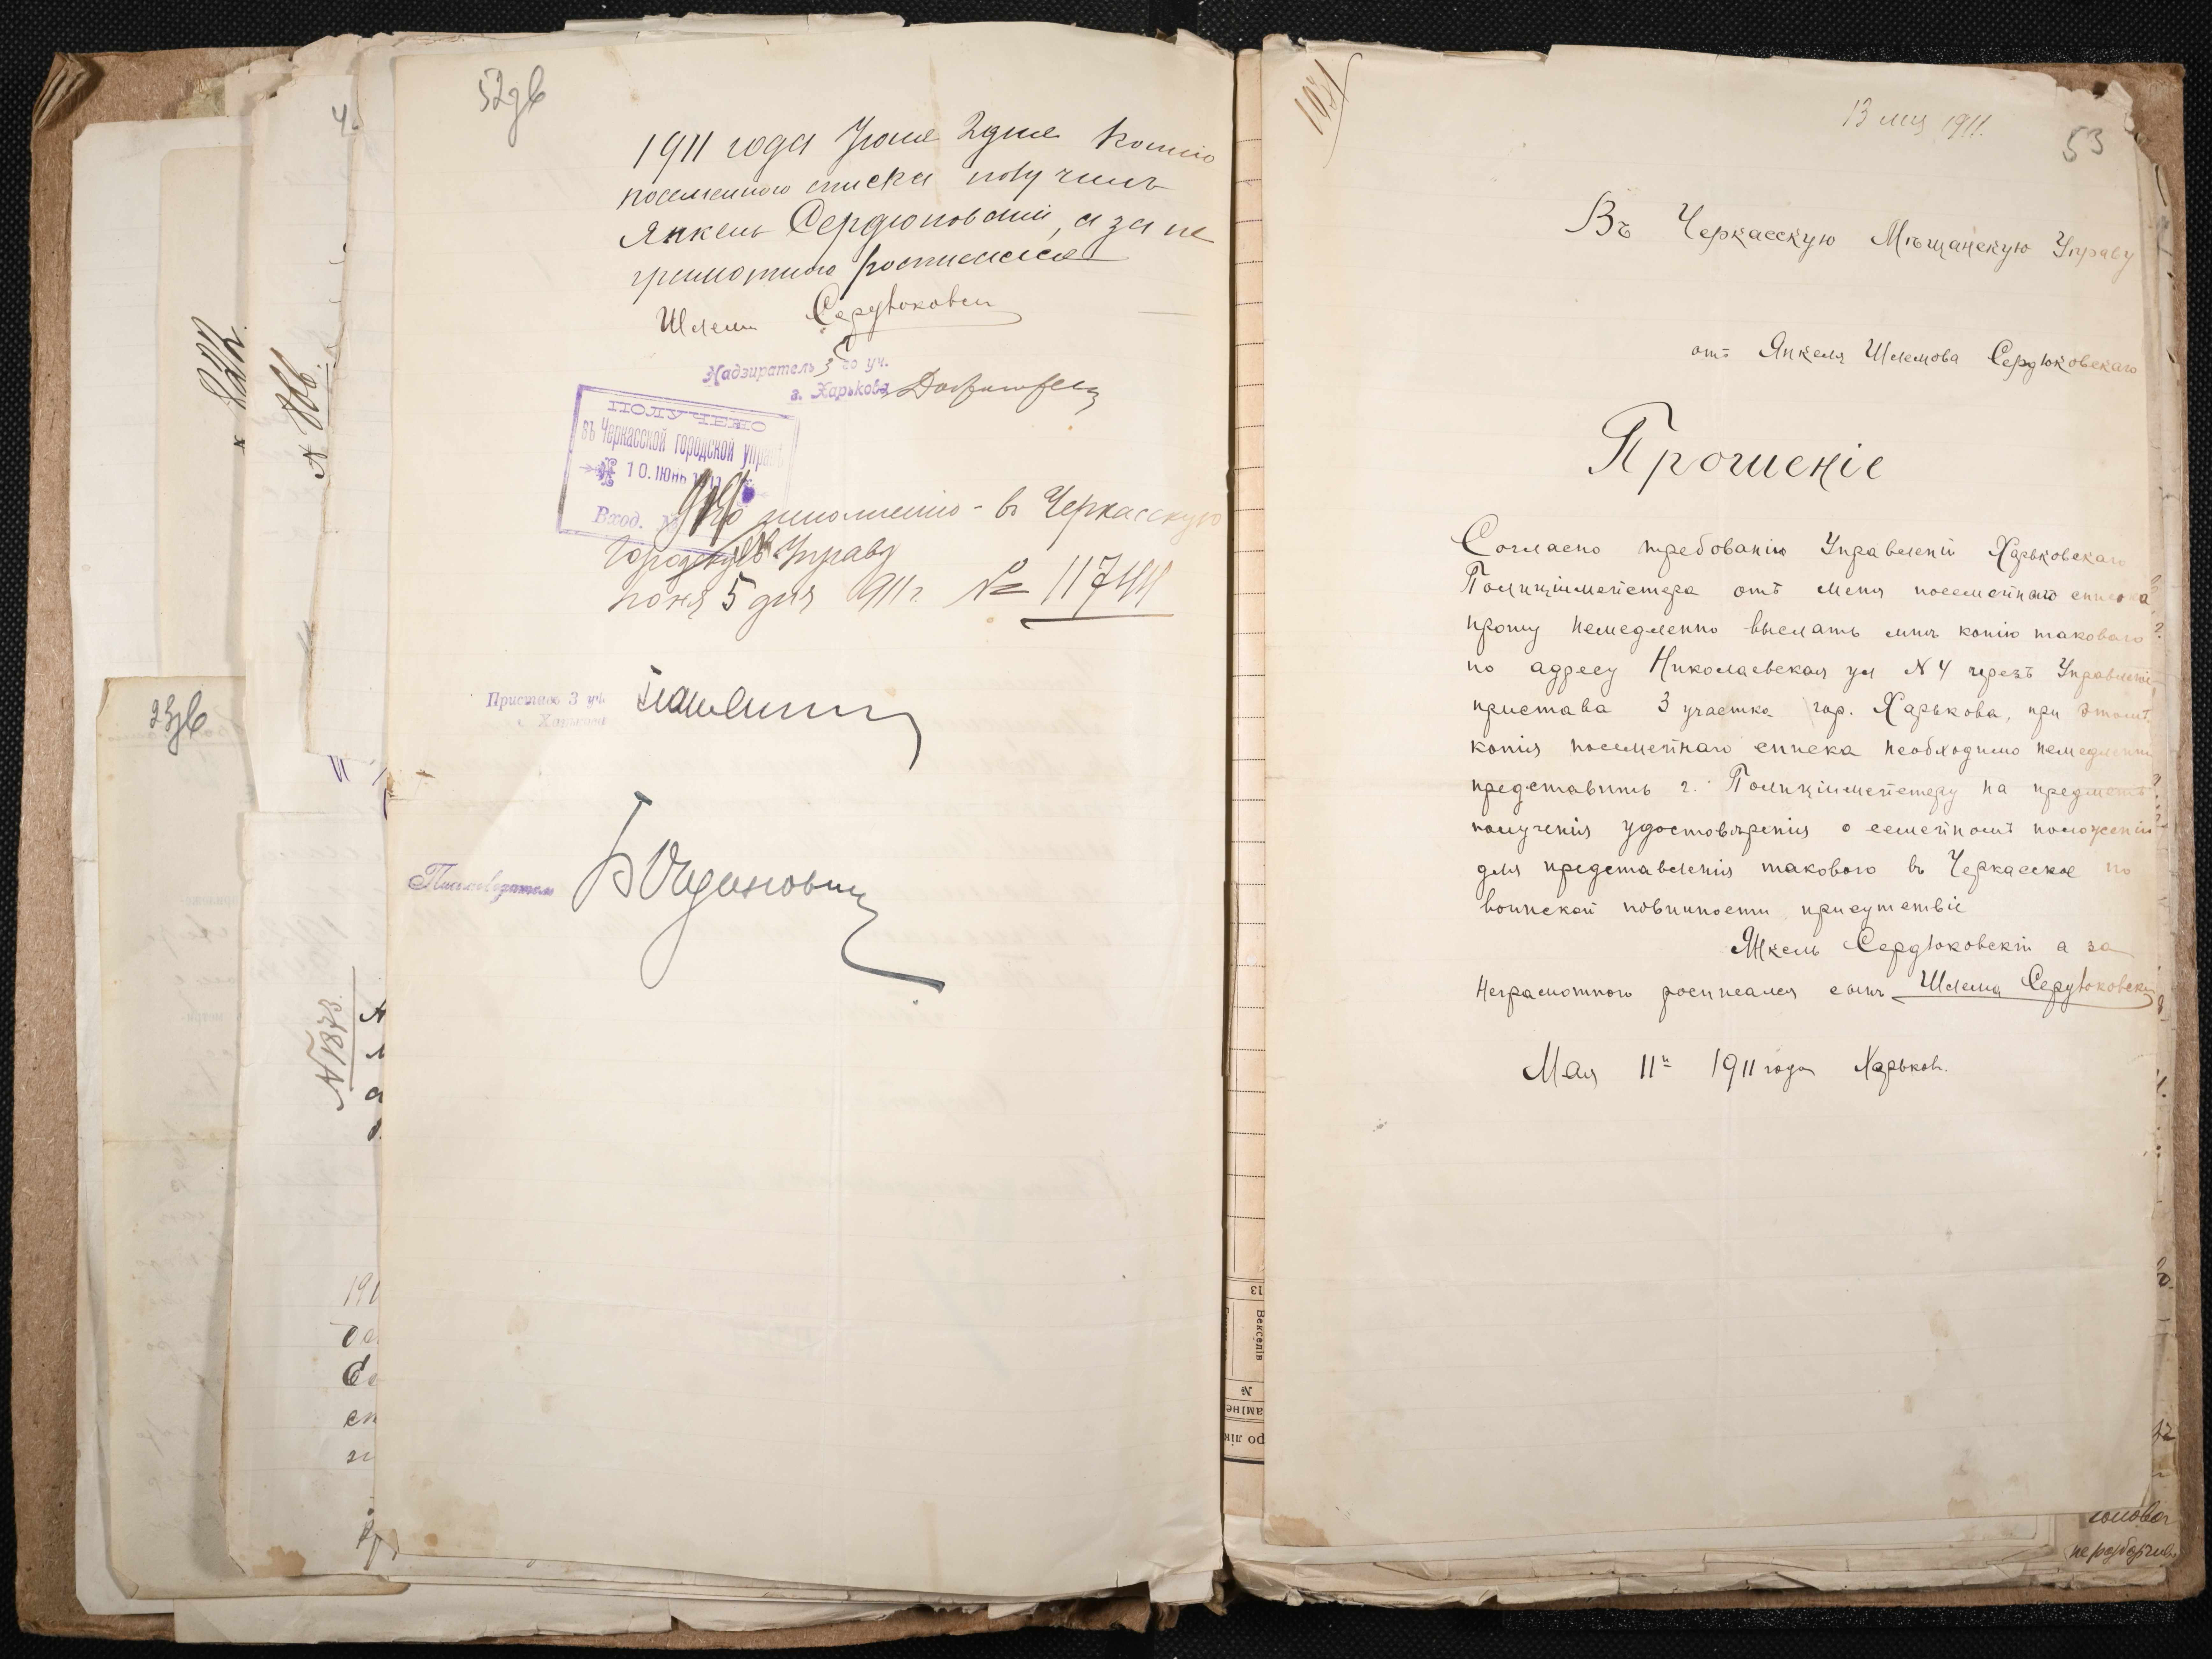 52зв
1911 года Июня 2 дня Копию
посемейного списка получилъ
Янкель Сердюковский, а за не
грамотного росписался
Шлема Сердюковский
Надзиратель 3 го уч.
г. Харькова
ПОЛУЧЕНО
въ Черкасской городской управѣ
10. ІЮНЬ 1911
Вход. №
По исполнению - въ Черкасскую
Городскую Управу
Июня 5 дня 911 г. № 11744
Приставъ 3 уч.
г. Харькова
Письмоводитель
23зв
N 866.
N 1873.
1071
13 мая 1911.
53
Въ Черкасскую Мѣщанскую Управу
отъ Янкеля Шлемова Сердюковскаго
Прошеніе
Согласно требованію Управленій Харьковскаго
Полиціймейстера отъ меня посемейнаго списка
прошу немедленно выслать мнѣ копію таковаго
по адресу Николаевская ул N 4 черезъ Управленіе
пристава 3 участка гор. Харькова, при этомъ
копія посемейнаго списка необходимо немедленно
представить г. Полиціймейстеру на предметъ
полученія удостовѣренія о семейномъ положеніи
для представленія такового въ Черкасское по
воинской повинности присутствіе
Янкель Сердюковскій а за
неграмотного росписался сынъ Шлема Сердюковский
Мая 11 1911 года Харьков.
13
Векселів
№